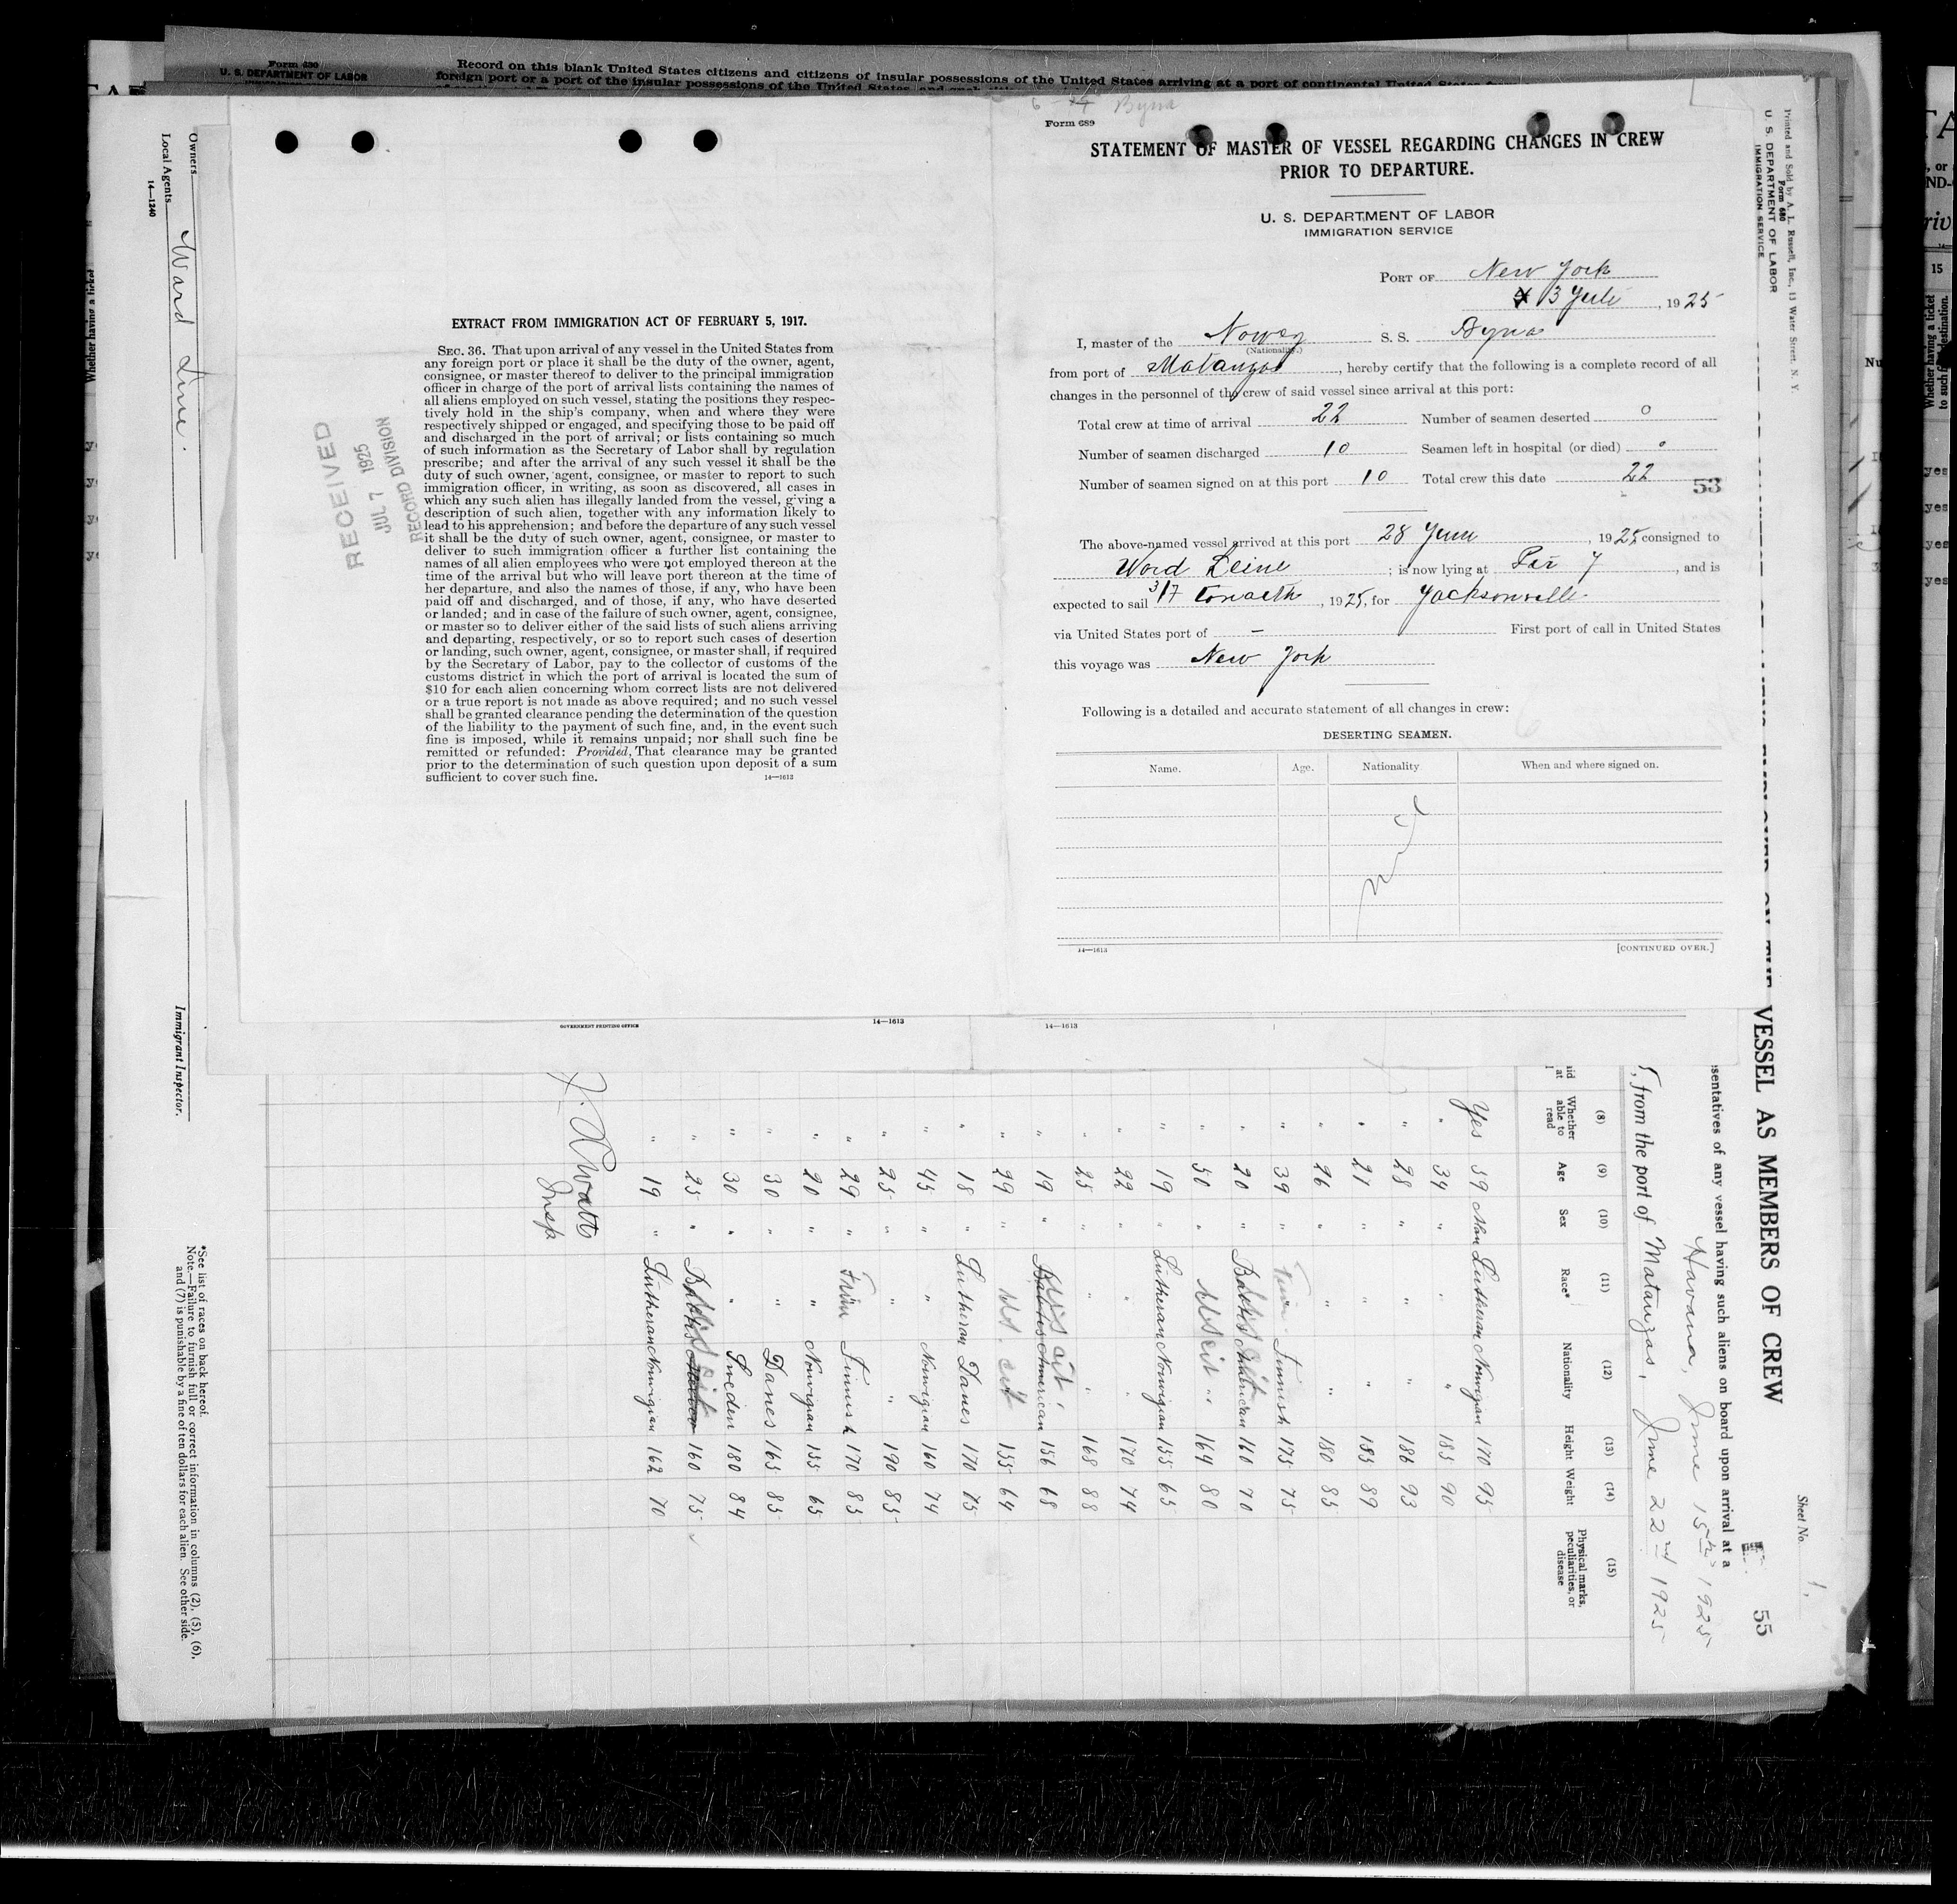 Form 630
U. S. DEPARTMENT OF LABOR
Record on this blank United States citizens and citizens of insular possessions of the United States arriving at a port of continental United States
foreign port or a port of the insular possessions of the United States, and such
Byna
Form 689
STATEMENT OF MASTER OF VESSEL REGARDING CHANGES IN CREW
PRIOR TO DEPARTURE.
U. S. DEPARTMENT OF LABOR
IMMIGRATION SERVICE
PORT OF New York
3 Juli, 1925
I, master of the Noway S. S. Byna
(Nationality.)
from port of Matanzas, hereby certify that the following is a complete record of all
changes in the personnel of the crew of said vessel since arrival at this port:
Total crew at time of arrival 22 Number of seamen deserted 0
Number of seamen discharged 10 Seamen left in hospital (or died) 0
Number of seamen signed on at this port 10 Total crew this date 22
53
The above-named vessel arrived at this port 28 Juni, 1925, consigned to
Word Leine; is now lying at Pir 7, and is
expected to sail 3/7, 1925, for Jacksonville
via United States port of — First port of call in United States
this voyage was New York
Following is a detailed and accurate statement of all changes in crew:
DESERTING SEAMEN.
Name. Age. Nationality When and where signed on.
14—1613 [CONTINUED OVER.]
EXTRACT FROM IMMIGRATION ACT OF FEBRUARY 5, 1917.
SEC. 36. That upon arrival of any vessel in the United States from
any foreign port or place it shall be the duty of the owner, agent,
consignee, or master thereof to deliver to the principal immigration
officer in charge of the port of arrival lists containing the names of
all aliens employed on such vessel, stating the positions they respec-
tively hold in the ship's company, when and where they were
respectively shipped or engaged, and specifying those to be paid off
and discharged in the port of arrival; or lists containing so much
of such information as the Secretary of Labor shall by regulation
prescribe; and after the arrival of any such vessel it shall be the
duty of such owner, agent, consignee, or master to report to such
immigration officer, in writing, as soon as discovered, all cases in
which any such alien has illegally landed from the vessel, giving a
description of such alien, together with any information likely to
lead to his apprehension; and before the departure of any such vessel
it shall be the duty of such owner, agent, consignee, or master to
deliver to such immigration officer a further list containing the
names of all alien employees who were not employed thereon at the
time of the arrival but who will leave port thereon at the time of
her departure, and also the names of those, if any, who have been
paid off and discharged, and of those, if any, who have deserted
or landed; and in case of the failure of such owner, agent, consignee,
or master so to deliver either of the said lists of such aliens arriving
and departing, respectively, or so to report such cases of desertion
or landing, such owner, agent, consignee, or master shall, if required
by the Secretary of Labor, pay to the collector of customs of the
customs district in which the port of arrival is located the sum of
$10 for each alien concerning whom correct lists are not delivered
or a true report is not made as above required; and no such vessel
shall be granted clearance pending the determination of the question
of the liability to the payment of such fine, and, in the event such
fine is imposed, while it remains unpaid; nor shall such fine be
remitted or refunded: Provided, That clearance may be granted
prior to the determination of such question upon deposit of a sum
sufficient to cover such fine.
14—1613
RECEIVED
JUL 7 1925
RECORD DIVISION
GOVERNMENT PRINTING OFFICE
14—1613
14—1613
Owners
Local Agents Ward Line.
14—1240
Immigrant Inspector.
*See list of races on back hereof.
Note.—Failure to furnish full or correct information in columns (2), (5), (6),
and (7) is punishable by a fine of ten dollars for each alien. See other side.
Printed and Sold by A. L. Russell, Inc., 13 Water Street, N. Y.
Form 680
U. S. DEPARTMENT OF LABOR
IMMIGRATION SERVICE
Sheet No. 1,
55
VESSEL AS MEMBERS OF CREW
sentatives of any vessel having such aliens on board upon arrival at a
Havana, June 15th 1925
, from the port of Matanzas, June 22nd 1925
(8) (9) (10) (11) (12) (13) (14) (15)
Whether able to read Age Sex Race* Nationality Height Weight Physical marks, peculiarities, or disease
Yes 39 Man Lutheran Norwigan 170 95
" 34 " " " 183 90
" 28 " " " 186 93
" 21 " " " 183 89
" 26 " " " 180 83
" 39 " Finn Finnish 175 75
" 20 " Babtis American 160 70
" 50 " US cit " 164 80
" 19 " Lutheran Norwigian 155 63
" 22 " " " 170 74
" 25 " " " 168 88
" 19 " Babtis American 156 68
" 29 " US. cit 155 64
" 18 " Lutheran Danes 170 75
" 45 " " Norwigian 160 74
" 25 " " " 190 85
" 29 " Finn Finnish 170 83
" 20 " " Norwigian 155 65
" 30 " " Danes 165 85
" 30 " " Sweden 180 84
" 25 " Babtis 160 75
" 19 " Lutheran Norwigian 162 70
Insp